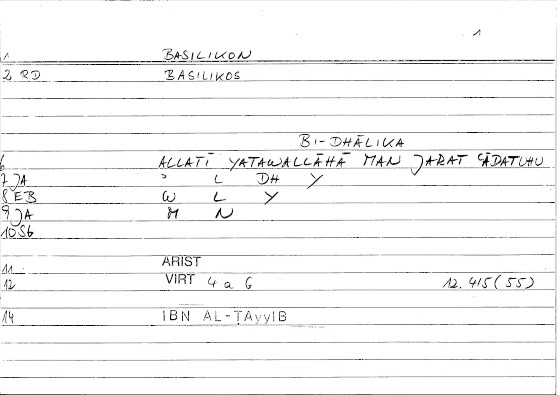 1
1 BASILIKON
2 RD BASILIKOS
BI-DHĀLIKA
6 ALLATĪ YATAWALLĀHĀ MAN JARAT ʿĀDATUHU
7 JA ʾ L DH Y
8 EB W L Y
9 JA M N
10 Sb
11 ARIST
12 VIRT 4 a 6 12.415(55)
14 IBN AL-ṬAyyIB